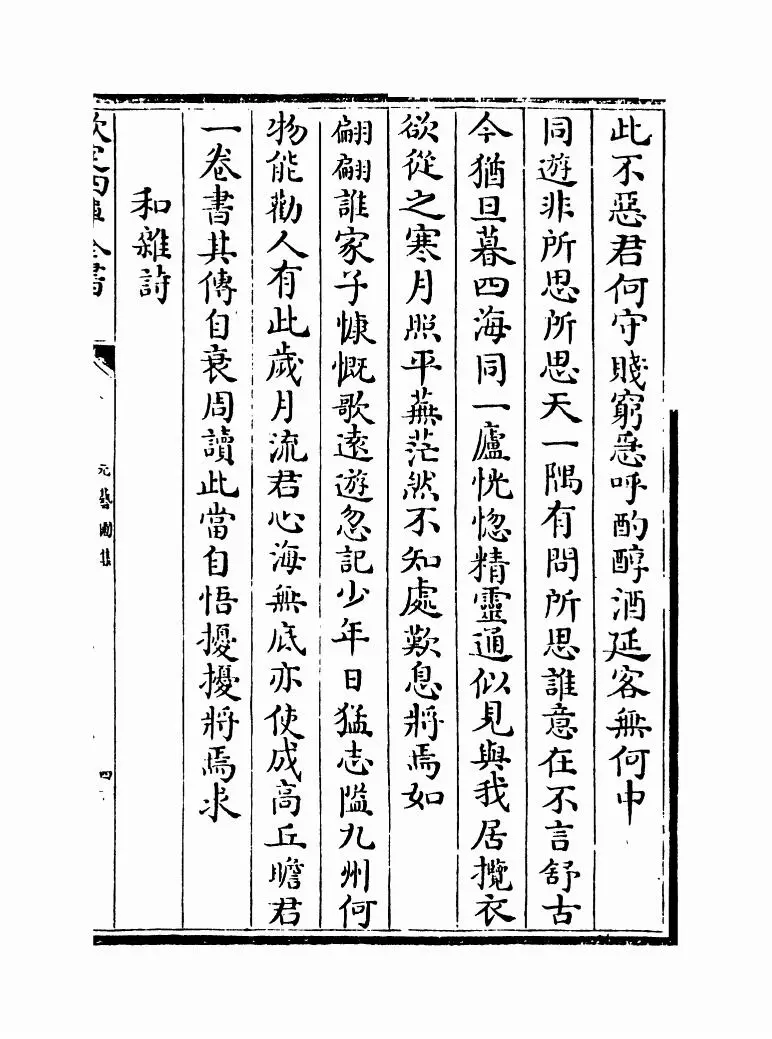 此不惡君何守賤窮急呼酌醇酒延客無何中
同遊非所思所思天一隅有問所思誰意在不言舒古
今猶旦暮四海同一廬恍惚精靈通似見與我居攬衣
欲從之寒月照平蕪茫然不知處歎息將焉如
翩翩誰家子慷慨歌遠遊忽記少年日猛志隘九州何
物能勸人有此歲月流君心海無底亦使成高丘瞻君
一卷書其傳自衰周讀此當自悟擾擾將焉求
和雜詩
欽定四庫全書
元藝圃集
四